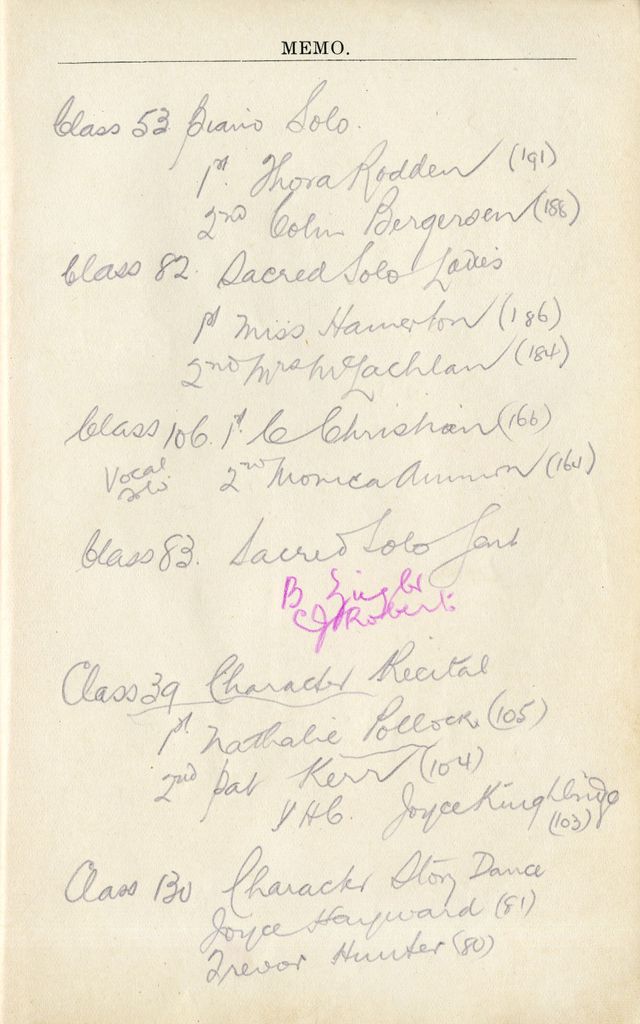 MEMO.
Class 53 Piano Solo.
1st. Thora Rodden (191)
2nd Colin Bergersen (188)
Class 82. Sacred Solo Ladies
1st Miss Hamerton (186)
2nd Mrs McLachlan (184)
Class 106. 1st. C Christian (166)
Vocal 2nd Monica Ammon (164)
Solo.
Class 83. Sacred Solo Gent
B
C J Robert
Class 39 Character Recital
1st. Nathalie Pollock (105)
2nd Pat Kerr (104)
VHC. Joyce
(103)
Class 130 Character Story Dance
Joyce Hayward (81)
Trevor Hunter (80)